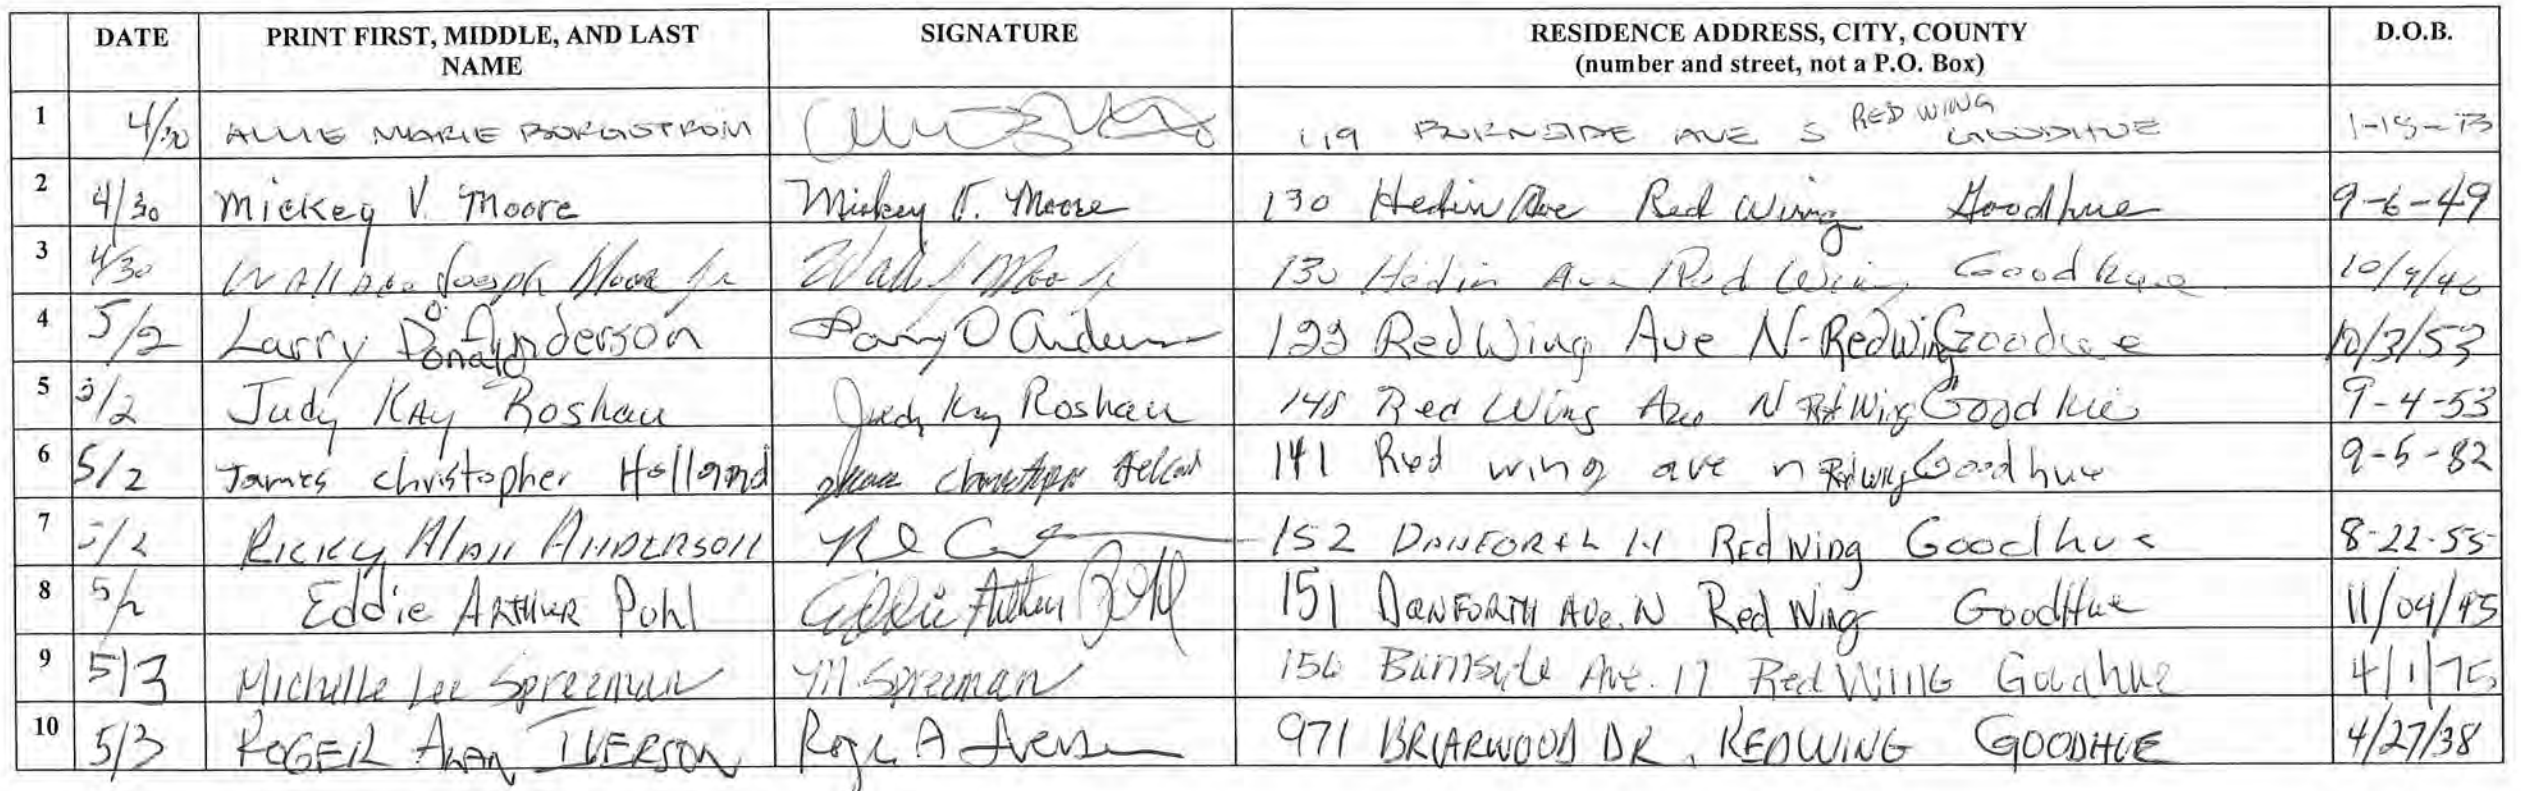 DATE PRINT FIRST, MIDDLE, AND LAST NAME SIGNATURE RESIDENCE ADDRESS, CITY, COUNTY (number and street, not a P.O. Box) D.O.B.
1 4/30 ALLIE MARIE BORGSTROM 119 BURNSIDE AVE S RED WING GOODHUE
2 4/30 Mickey V. Moore Mickey V. Moore 130 Hedin Ave Red Wing Goodhue 9-6-49
3 4/30 Wallace Joseph Moore Jr 130 Hedin Ave Red Wing Goodhue
4 5/2 Larry Donald Anderson Larry D Anderson Red Wing Ave N - Red Wing Goodhue
5 5/2 Judy Kay Roshau Judy Kay Roshau Red Wing Ave N Red Wing Goodhue 9-4-53
6 5/2 James christopher Holland 141 Red wing ave n Red wing Goodhue 9-5-82
7 5/2 Ricky Alan Anderson 152 Danforth N Red Wing Goodhue 8-22-55
8 5/2 Eddie Arthur Pohl Eddie Arthur Pohl 151 Danforth Ave. N Red Wing GoodHue
9 5/3 Michelle Lee Spreeman M Spreeman 156 Burnside Ave. N Red Wing Goodhue 4/1/75
10 5/3 ROGER ALAN IVERSON Roger A Iverson 971 BRIARWOOD DR, RED WING GOODHUE 4/27/38